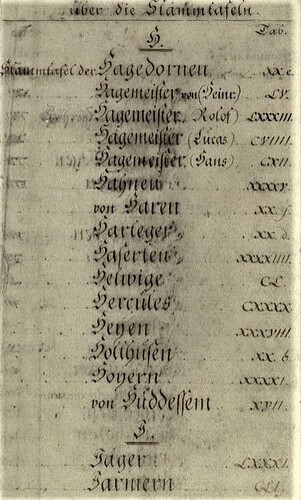 über die Stammtafeln.
H. Tab.
Stammtafel der Hagedornen XX.c.
Hagemeister, von (Heinr.) LV.
Hagemeister, Rolof LXXXIII.
Hagemeister (Lucas) CVIIII.
Hagemeister (Hans) CXII.
Hahnen XXXXV.
von Haren XX. f.
Harteger XX. d.
Haserten XXXXIIII.
Helwige CL.
Hercules CXXXX.
Heyen XXXVIII.
Holthusen XX. b.
Hoyern XXXXI.
von Huddessem XVII.
J.
Jäger LXXXI.
Jarmern CLI.